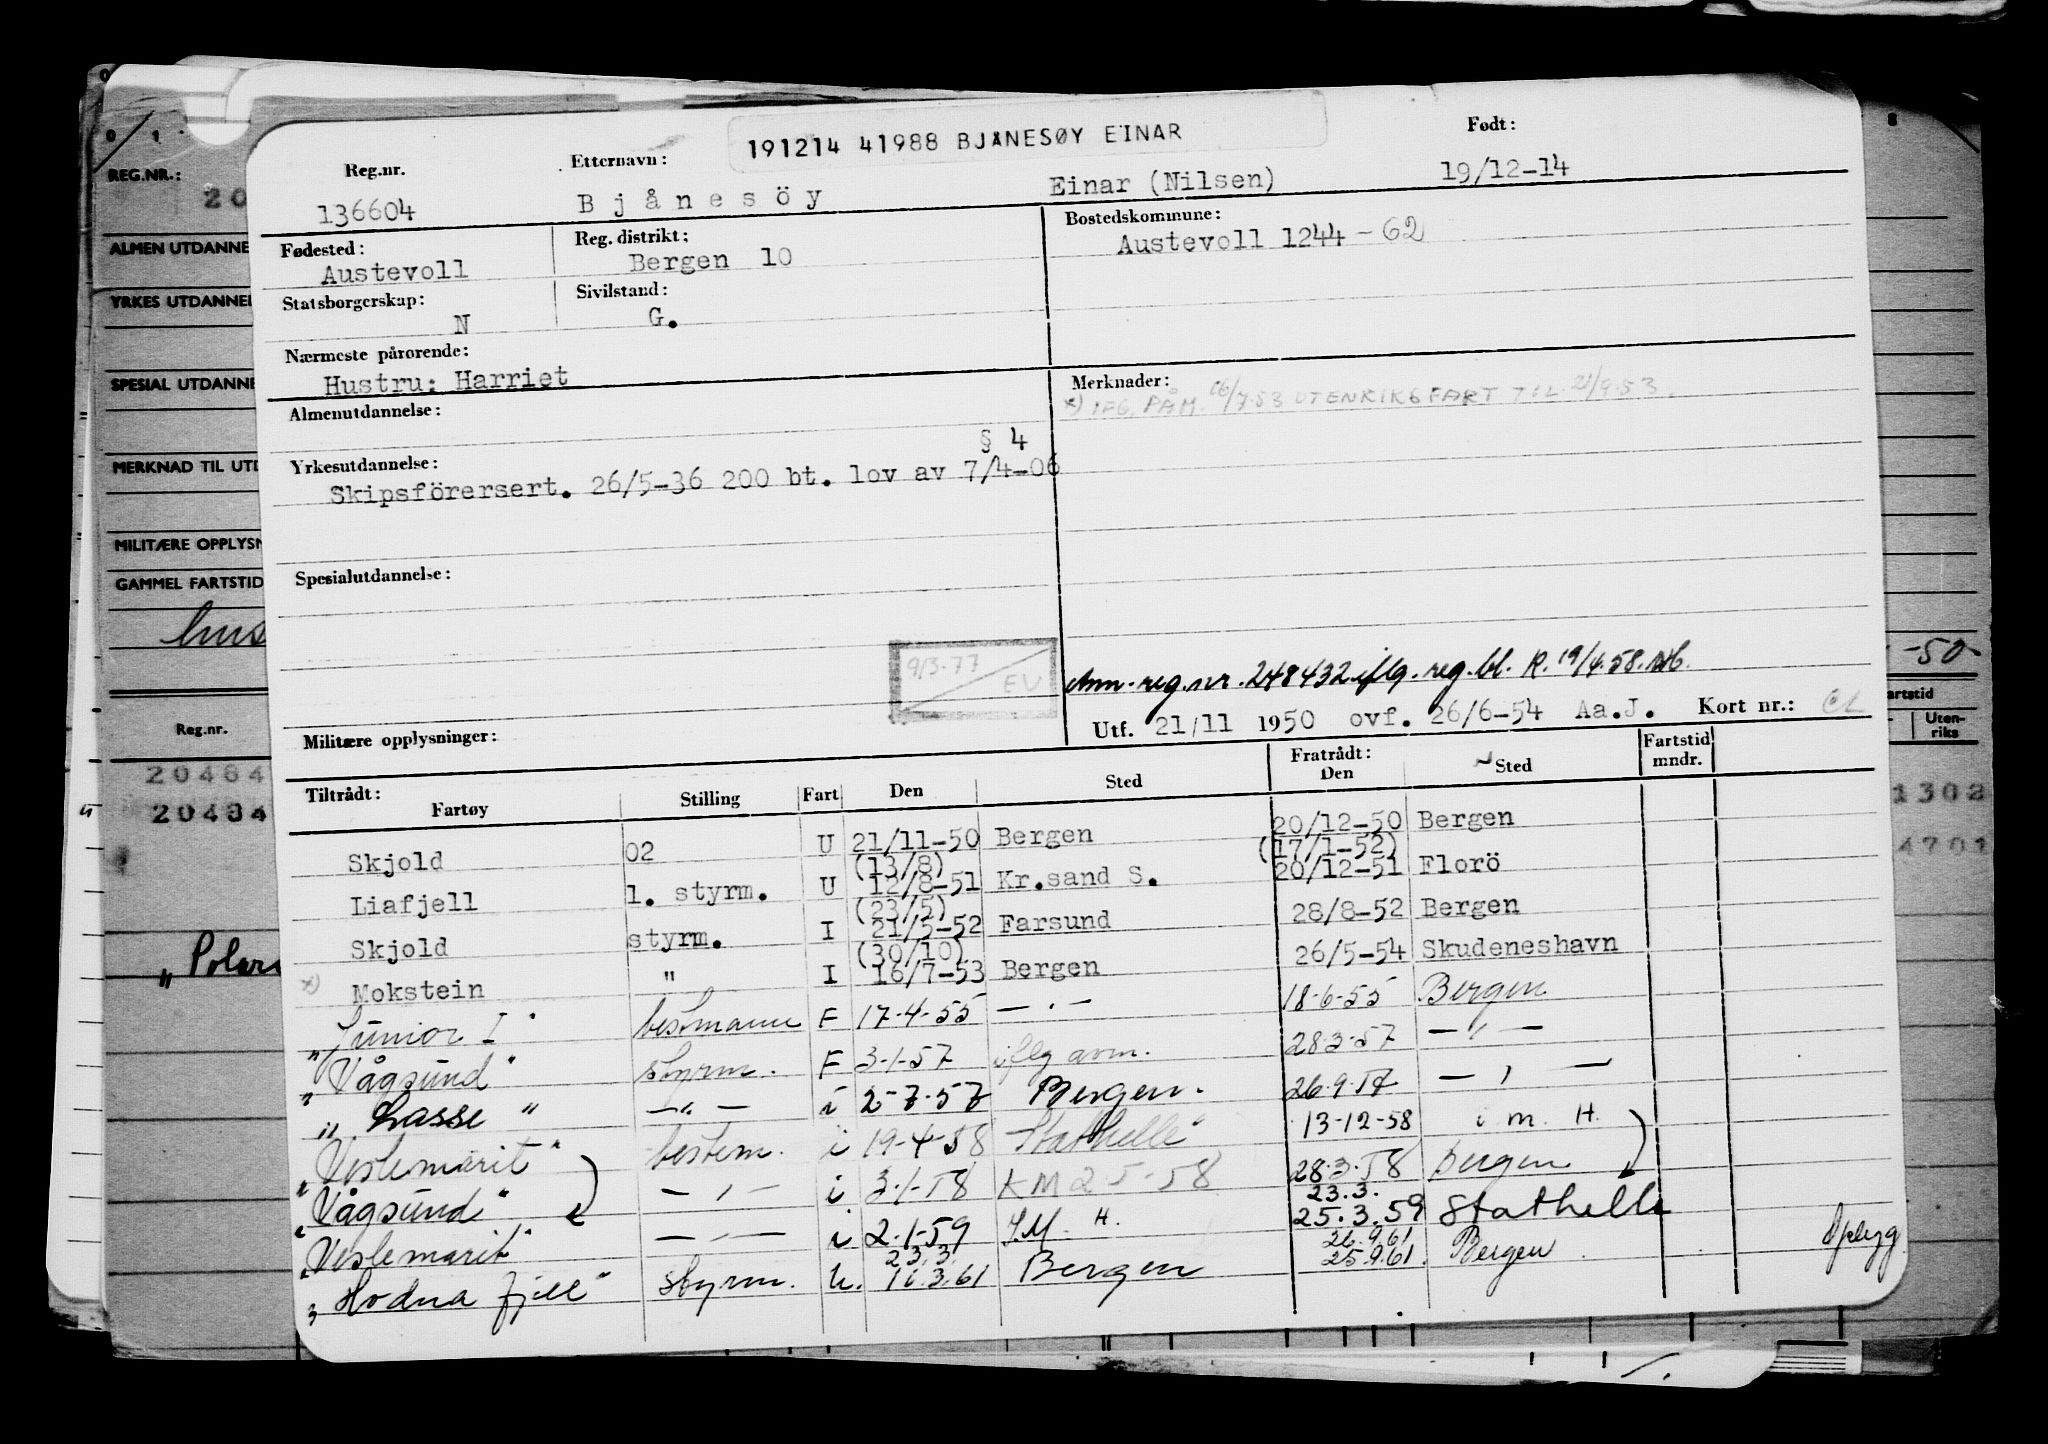 191214 41988 BJÅNESØY EINAR
Reg.nr. Etternavn: Født:
136604 Bjånesöy Einar (Nilsen) 19/12-14
Fødested: Reg. distrikt: Bostedskommune:
Austevoll Bergen 10 Austevoll 1244 - 62
Statsborgerskap: Sivilstand:
N G.
Nærmeste pårørende: Merknader:
Hustru: Harriet x) IFG. PÅM. 16/7.53 UTENRIKSFART TIL 21/9.53.
Almenutdannelse:
§ 4
Yrkesutdannelse:
Skipsförersert. 26/5-36 200 bt. lov av 7/4-06
Spesialutdannelse:
9/3-77 EV
Ann. reg.nr. 248432 iflg. reg. bl. R. 19/4.58.
Utf. 21/11 1950 ovf. 26/6-54 Aa.J. Kort nr.:
Militære opplysninger:
Tiltrådt: Fratrådt: Fartstid mndr.
Fartøy Stilling Fart Den Sted Den Sted
Skjold 02 U 21/11-50 Bergen 20/12-50 Bergen
(13/8) (17/1-52)
Liafjell 1. styrm. U 12/8-51 Kr.sand S. 20/12-51 Florö
(23/5)
Skjold styrm. I 21/5-52 Farsund 28/8-52 Bergen
(30/10)
x) Mokstein " I 16/7-53 Bergen 26/5-54 Skudeneshavn
"Junior I" bestmann F 17-4-55 — " — 18-6-55 Bergen
"Vågsund" styrm. F 3-1-57 iflg avm. 28-3-57 — " —
"Lasse" — " — i 2-7-57 Bergen. 26.9.57 — " —
"Veslemarit" bestem. i 19-4-58 Stathelle 13-12-58 i m. H.
"Vågsund" — " — i 3-1-58 KM 2-5-58 28-3-58 Bergen
23.3.
"Veslemarit" — " — i 2-1-59 I.M. H. 25.3.59 Stathelle
23.3. 26.9.61
"Hodnafjell" styrm. U. 16.3.61 Bergen 25.9.61. Bergen
REG.NR.:
20
ALMEN UTDANNE
YRKES UTDANNEL
SPESIAL UTDANNE
MERKNAD TIL UTD
MILITÆRE OPPLYSN
GAMMEL FARTSTID
-50
artstid
Reg.nr. Uten-
riks
20484
20484
1302
4701
"Polar